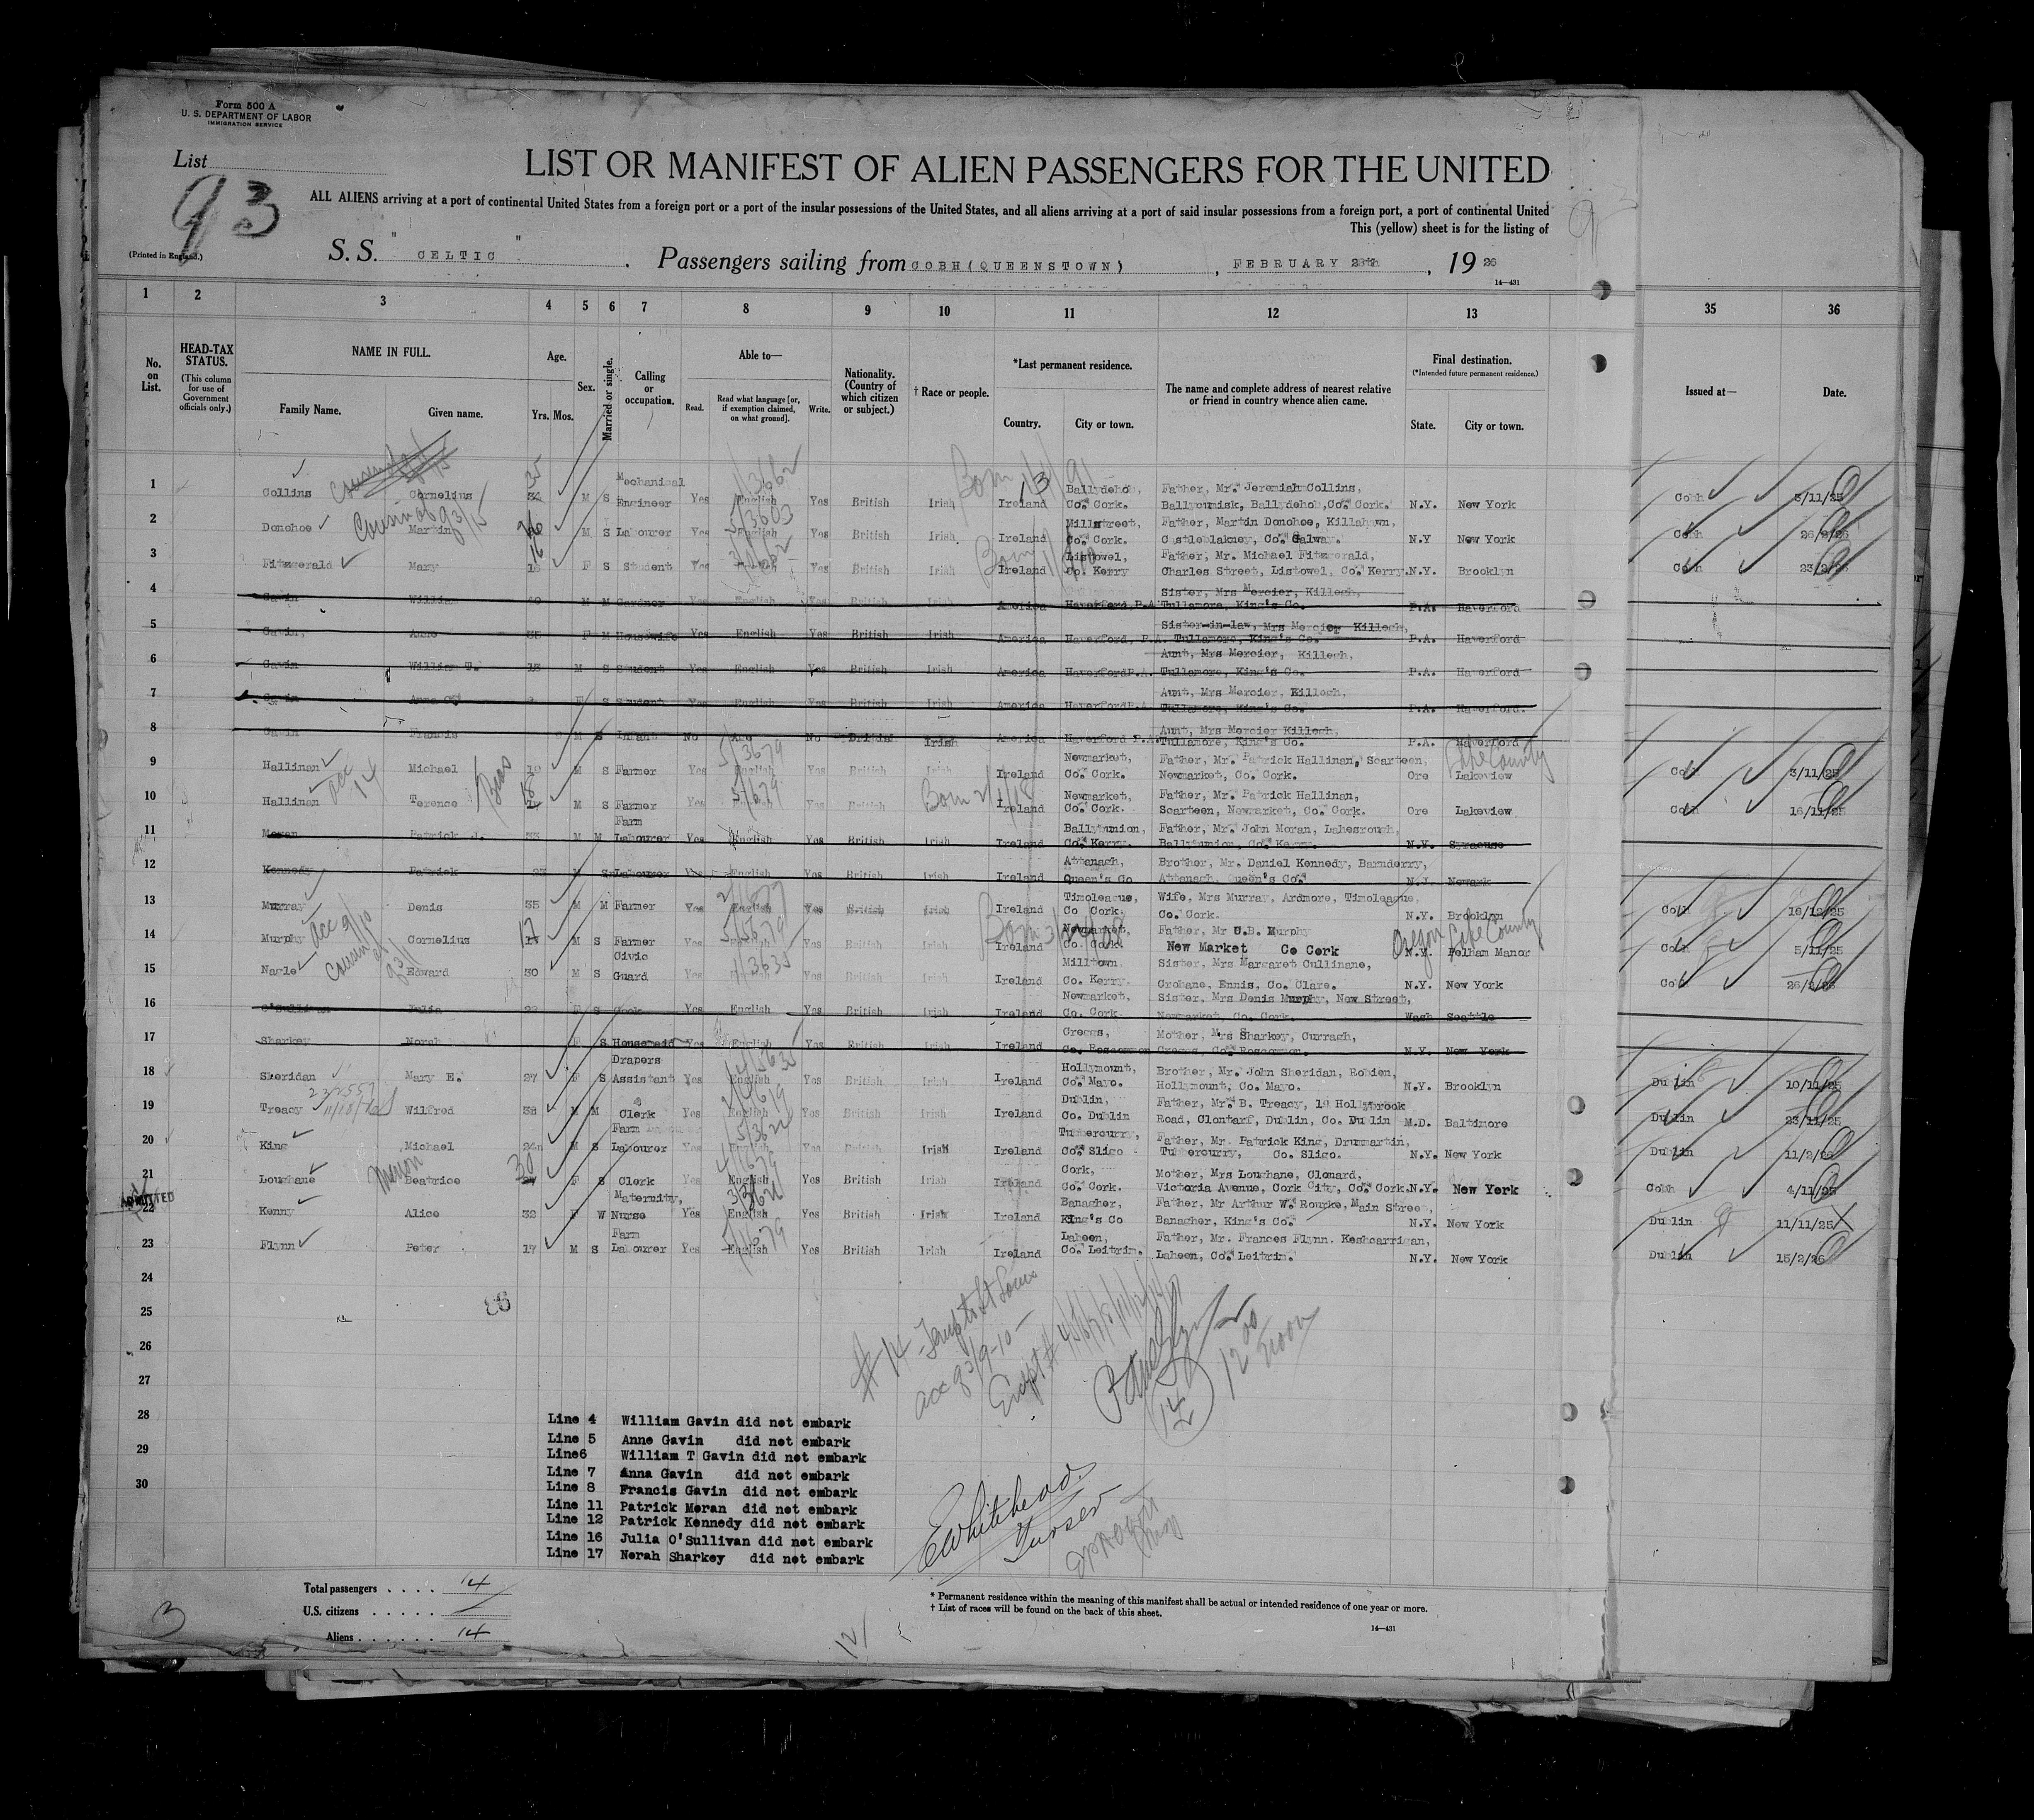 Form 500 A
U. S. DEPARTMENT OF LABOR
IMMIGRATION SERVICE
List
93
LIST OR MANIFEST OF ALIEN PASSENGERS FOR THE UNITED
ALL ALIENS arriving at a port of continental United States from a foreign port or a port of the insular possessions of the United States, and all aliens arriving at a port of said insular possessions from a foreign port, a port of continental United
This (yellow) sheet is for the listing of
(Printed in England.)
S. S. " CELTIC " Passengers sailing from COBH (QUEENSTOWN), FEBRUARY 28th, 19 26
14—431
1 2 3 4 5 6 7 8 9 10 11 12 13 35 36
No. on List.
HEAD-TAX STATUS.
(This column for use of Government officials only.)
NAME IN FULL.
Family Name. Given name.
Age.
Yrs. Mos.
Sex.
Married or single.
Calling or occupation.
Able to—
Read. Read what language [or, if exemption claimed, on what ground]. Write.
Nationality. (Country of which citizen or subject.)
† Race or people.
*Last permanent residence.
Country. City or town.
The name and complete address of nearest relative or friend in country whence alien came.
Final destination.
(*Intended future permanent residence.)
State. City or town.
Issued at— Date.
1 Collins Cornelius M S Mechanical Engineer Yes English Yes British Irish Ireland Ballydehob, Co. Cork. Father, Mr. Jeremiah Collins, Ballycumisk, Ballydehob, Co. Cork. N.Y. New York Cobh 3/11/25
2 Donohoe Martin 26 M S Labourer Yes English Yes British Irish Ireland Millstreet, Co. Cork. Father, Martin Donohoe, Killahawn, Castleblakney, Co. Galway. N.Y New York Cobh 26/2/26
3 Fitzgerald Mary 16 F S Student Yes Yes British Irish Ireland Listowel, Co. Kerry Father, Mr. Michael Fitzgerald, Charles Street, Listowel, Co. Kerry. N.Y. Brooklyn Cobh 23/2/26
4 Gavin William 40 M M Gardner Yes English Yes British Irish America Haverford, P.A. Sister, Mrs Mercier, Killegh, Tullamore, King's Co. P.A. Haverford
5 Gavin, Anne F M Housewife Yes English Yes British Irish America Haverford, P.A. Sister-in-law, Mrs Mercier Killegh, Tullamore, King's Co. P.A. Haverford
6 Gavin William T. 13 M S Student Yes English Yes British Irish America Haverford P.A. Aunt, Mrs Mercier, Killegh, Tullamore, King's Co. P.A. Haverford
7 Gavin F S Student Yes English Yes British Irish America Haverford P.A. Aunt, Mrs Mercier, Killegh, Tullamore, King's Co. P.A. Haverford.
8 Gavin Francis M S Infant No Age No British Irish America Haverford P.A. Aunt, Mrs Mercier Killegh, Tullamore, King's Co. P.A. Haverford
9 Hallinan Michael M S Farmer Yes English Yes British Irish Ireland Newmarket, Co. Cork. Father, Mr. Patrick Hallinan, Scarteen, Newmarket, Co. Cork. Ore Lakeview Lake County Cobh 3/11/25
10 Hallinan Terence 18 M S Farmer Yes Yes British Born 2/1/18 Ireland Newmarket, Co. Cork. Father, Mr. Patrick Hallinan, Scarteen, Newmarket, Co. Cork. Ore Lakeview Cobh 16/11/25
11 Moran Patrick J. 33 M M Farm Labourer Yes English Yes British Irish Ireland Ballybunion, Co. Kerry. Father, Mr. John Moran, Lahesrough, Ballybunion, Co. Kerry. N.Y. Syracuse
12 Kennedy Patrick M S Labourer Yes English Yes British Irish Ireland Attanagh, Queen's Co Brother, Mr. Daniel Kennedy, Barnderry, Attanagh, Queen's Co. N.J. Newark
13 Murray Denis 35 M M Farmer Yes English Yes British Irish Ireland Timoleague, Co Cork. Wife, Mrs Murray, Ardmore, Timoleague, Co. Cork. N.Y. Brooklyn Cobh 16/12/25
14 Murphy Cornelius 17 M S Farmer Yes Yes British Irish Ireland Newmarket, Co. Cork. Father, Mr C.B. Murphy New Market Co Cork N.Y. Pelham Manor Oregon Lake County Cobh 5/11/25
15 Nagle Edward 30 M S Civic Guard Yes English Yes British Irish Ireland Milltown, Co. Kerry. Sister, Mrs Margaret Cullinane, Crohane, Ennis, Co. Clare. N.Y. New York Cobh 26/2/26
16 O'Sullivan Julia F S Cook Yes English Yes British Irish Ireland Newmarket, Co. Cork Sister, Mrs Denis Murphy, New Street, Newmarket, Co. Cork. Wash Seattle
17 Sharkey Norah F S Housemaid Yes English Yes British Irish Ireland Creggs, Co. Roscommon Mother, Mrs Sharkey, Curragh, Creggs, Co. Roscommon. N.Y. New York
18 Sheridan Mary E. 27 F S Drapers Assistant Yes English Yes British Irish Ireland Hollymount, Co. Mayo. Brother, Mr. John Sheridan, Robien, Hollymount, Co. Mayo. N.Y. Brooklyn Dublin 10/11/25
19 Treacy Wilfred 38 M M Clerk Yes English Yes British Irish Ireland Dublin, Co. Dublin Father, Mr. B. Treacy, 19 Hollybrook Road, Clontarf, Dublin, Co. Dublin M.D. Baltimore Dublin 23/11/25
20 King Michael M S Farm Labourer Yes English Yes British Irish Ireland Tubbercurry, Co. Sligo Father, Mr. Patrick King, Drummartin, Tubbercurry, Co. Sligo. N.Y. New York Dublin 11/2/26
21 Loughane Beatrice 30 F S Clerk Yes English Yes British Irish Ireland Cork, Co. Cork. Mother, Mrs Loughane, Clonard, Victoria Avenue, Cork City, Co. Cork. N.Y. New York Cobh 4/11/25
ADMITTED
22 Kenny Alice 32 F W Maternity, Nurse Yes English Yes British Irish Ireland Banagher, King's Co Father, Mr Arthur W. Rourke, Main Street, Banagher, King's Co. N.Y. New York Dublin 11/11/25
23 Flynn Peter 17 M S Farm Labourer Yes English Yes British Irish Ireland Laheen, Co. Leitrim. Father, Mr. Frances Flynn. Keshcarrigan, Laheen, Co. Leitrim. N.Y. New York Dublin 15/2/26
24
25
93
26
27
28
29
30
Line 4 William Gavin did not embark
Line 5 Anne Gavin did not embark
Line6 William T Gavin did not embark
Line 7 Anna Gavin did not embark
Line 8 Francis Gavin did not embark
Line 11 Patrick Moran did not embark
Line 12 Patrick Kennedy did not embark
Line 16 Julia O'Sullivan did not embark
Line 17 Norah Sharkey did not embark
12 00 noon
14
E Whitehead
Purser
Total passengers . . . . 14
U.S. citizens . . . . .
Aliens . . . . . . 14
3
* Permanent residence within the meaning of this manifest shall be actual or intended residence of one year or more.
† List of races will be found on the back of this sheet.
14—431